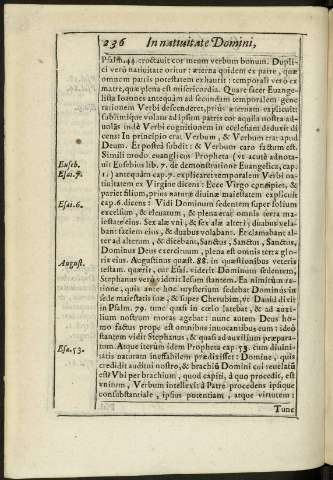 236 In natiuitate Domini,
Psalm. 44. eructauit cor meum verbum bonum. Dupli-
ci verò natiuitate oritur: æterna quidem ex patre, quæ
omnem patris potestatem exhausit: temporali verò ex
matre, quæ plena est misericordia. Quare sacer Euange-
lista Ioannes antequàm ad secundam temporalem gene-
rationem Verbi descenderet, prius æternam explicuit:
sublimi ipse volatu ad ipsum patris cor aquila nostra ad-
uolās indè Verbi cognitionem in ecclesiam deduxit di
cens: In principio erat Verbum, & Verbum erat apud
Deum. Et postrà subdit: & Verbum caro factum est.
Simili modo euangelicus Propheta (vt acutè adnota-
Euseb. uit Eusebius lib. 7. de demonstratione Euangelica, cap.
Esai. 7. 1.) antequàm cap. 7. explicaret temporalem Verbi na-
tiuitatem ex Virgine dicens: Ecce Virgo concipiet, &
pariet filium, prius naturæ diuinæ maiestatem explicuit
Esai. 6. cap. 6. dicens: Vidi Dominum sedentem super solium
excelsum, & eleuatum, & plena erat omnis terra ma-
iestate eius. Sex alæ vni, & sex alæ alteri; duabus vela-
bant faciem eius, & duabus velabant. Et clamabant al-
ter ad alterum, & dicebant, Sanctus, Sanctus, Sanctus,
Dominus Deus exercituum, plena est omnis terra glo-
ria eius. Augustinus quæst. 88. in quæstionibus veteris
August. testam. quærit, cur Esai. viderit Dominum sedentem,
Stephanus verò viderit Iesum stantem. Ea nimirum ra-
tione, quia ante hoc mysterium sedebat Dominus in
sede maiestatis suæ, & super Cherubim, vt Dauid dixit
in Psalm. 79. tunc quasi in cœlo latebat, & ad auxi-
lium nostrum moras agebat: nunc autem Deus ho-
mo factus prope est omnibus inuocantibus eum: ideò
stantem vidit Stephanus, & quasi ad auxilium præpara-
Esa. 53. tum. Atque iterùm idem Propheta cap. 53. cùm diuini-
tatis naturam ineffabilem prædixisset: Domine, quis
credidit auditui nostro, & brachiū Domini cui reuelatū
est? Vbi per brachium, quod capiti, à quo procedit, est
vnitum, Verbum intellexit à Patre procedens ipsique
consubstantiale, ipsius potentiam, atque virtutem:
Tunc